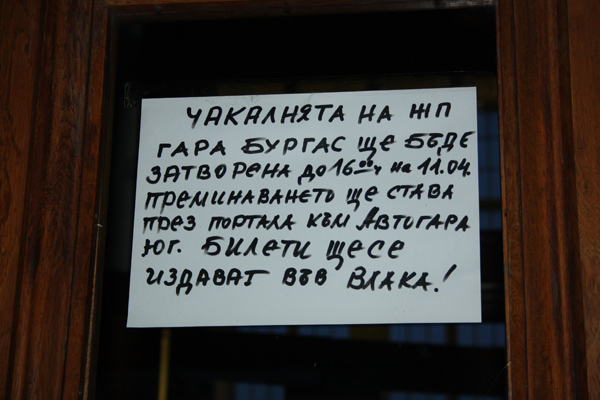 ЧАКАЛНЯТА НА ЖП
ГАРА БУРГАС ЩЕ БЪДЕ
ЗАТВОРЕНА ДО 16ºº ч НА 11.04.
ПРЕМИНАВАНЕТО ЩЕ СТАВА
ПРЕЗ ПОРТАЛА КЪМ АВТОГАРА
ЮГ. БИЛЕТИ ЩЕСЕ
ИЗДАВАТ ВЪВ ВЛАКА.!